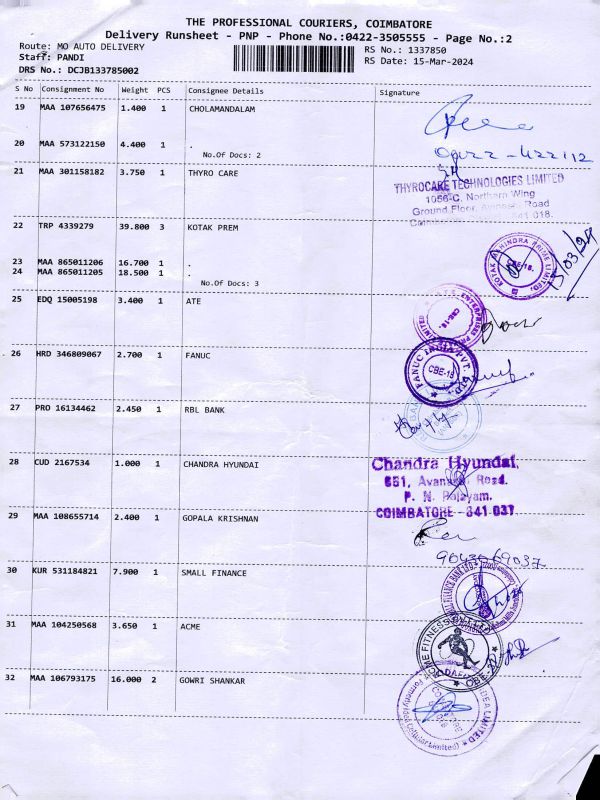 THE PROFESSIONAL COURIERS, COIMBATORE
Delivery Runsheet - PNP - Phone No.:0422-3505555 - Page No.:2
Route: MO AUTO DELIVERY
RS No.: 1337850
Staff: PANDI
RS Date: 15-Mar-2024
DRS No.: DCJB133785002
S No Consignment No Weight PCS Consignee Details Signature
19 MAA 107656475 1.400 1 CHOLAMANDALAM
20 MAA 573122150 4.400 1 .
No.Of Docs: 2
21 MAA 301158182 3.750 1 THYRO CARE
THYROCARE TECHNOLOGIES LIMITED
1056-C, Northern Wing
Ground Floor, Avinashi Road
641 018.
22 TRP 4339279 39.800 3 KOTAK PREM
KOTAK MAHINDRA PRIME LIMITED
CBE-18.
23 MAA 865011206 16.700 1 .
24 MAA 865011205 18.500 1 .
No.Of Docs: 3
25 EDQ 15005198 3.400 1 ATE
CBE-18.
26 HRD 346809067 2.700 1 FANUC
FANUC INDIA PVT. LTD.
CBE-18
27 PRO 16134462 2.450 1 RBL BANK
28 CUD 2167534 1.000 1 CHANDRA HYUNDAI
Chandra Hyundai,
651, Avanashi Road.
P. N. Palayam.
COIMBATORE - 641 037
29 MAA 108655714 2.400 1 GOPALA KRISHNAN
30 KUR 531184821 7.900 1 SMALL FINANCE
31 MAA 104250568 3.650 1 ACME
ACME FITNESS PVT LTD
32 MAA 106793175 16.000 2 GOWRI SHANKAR
IDEA LIMITED